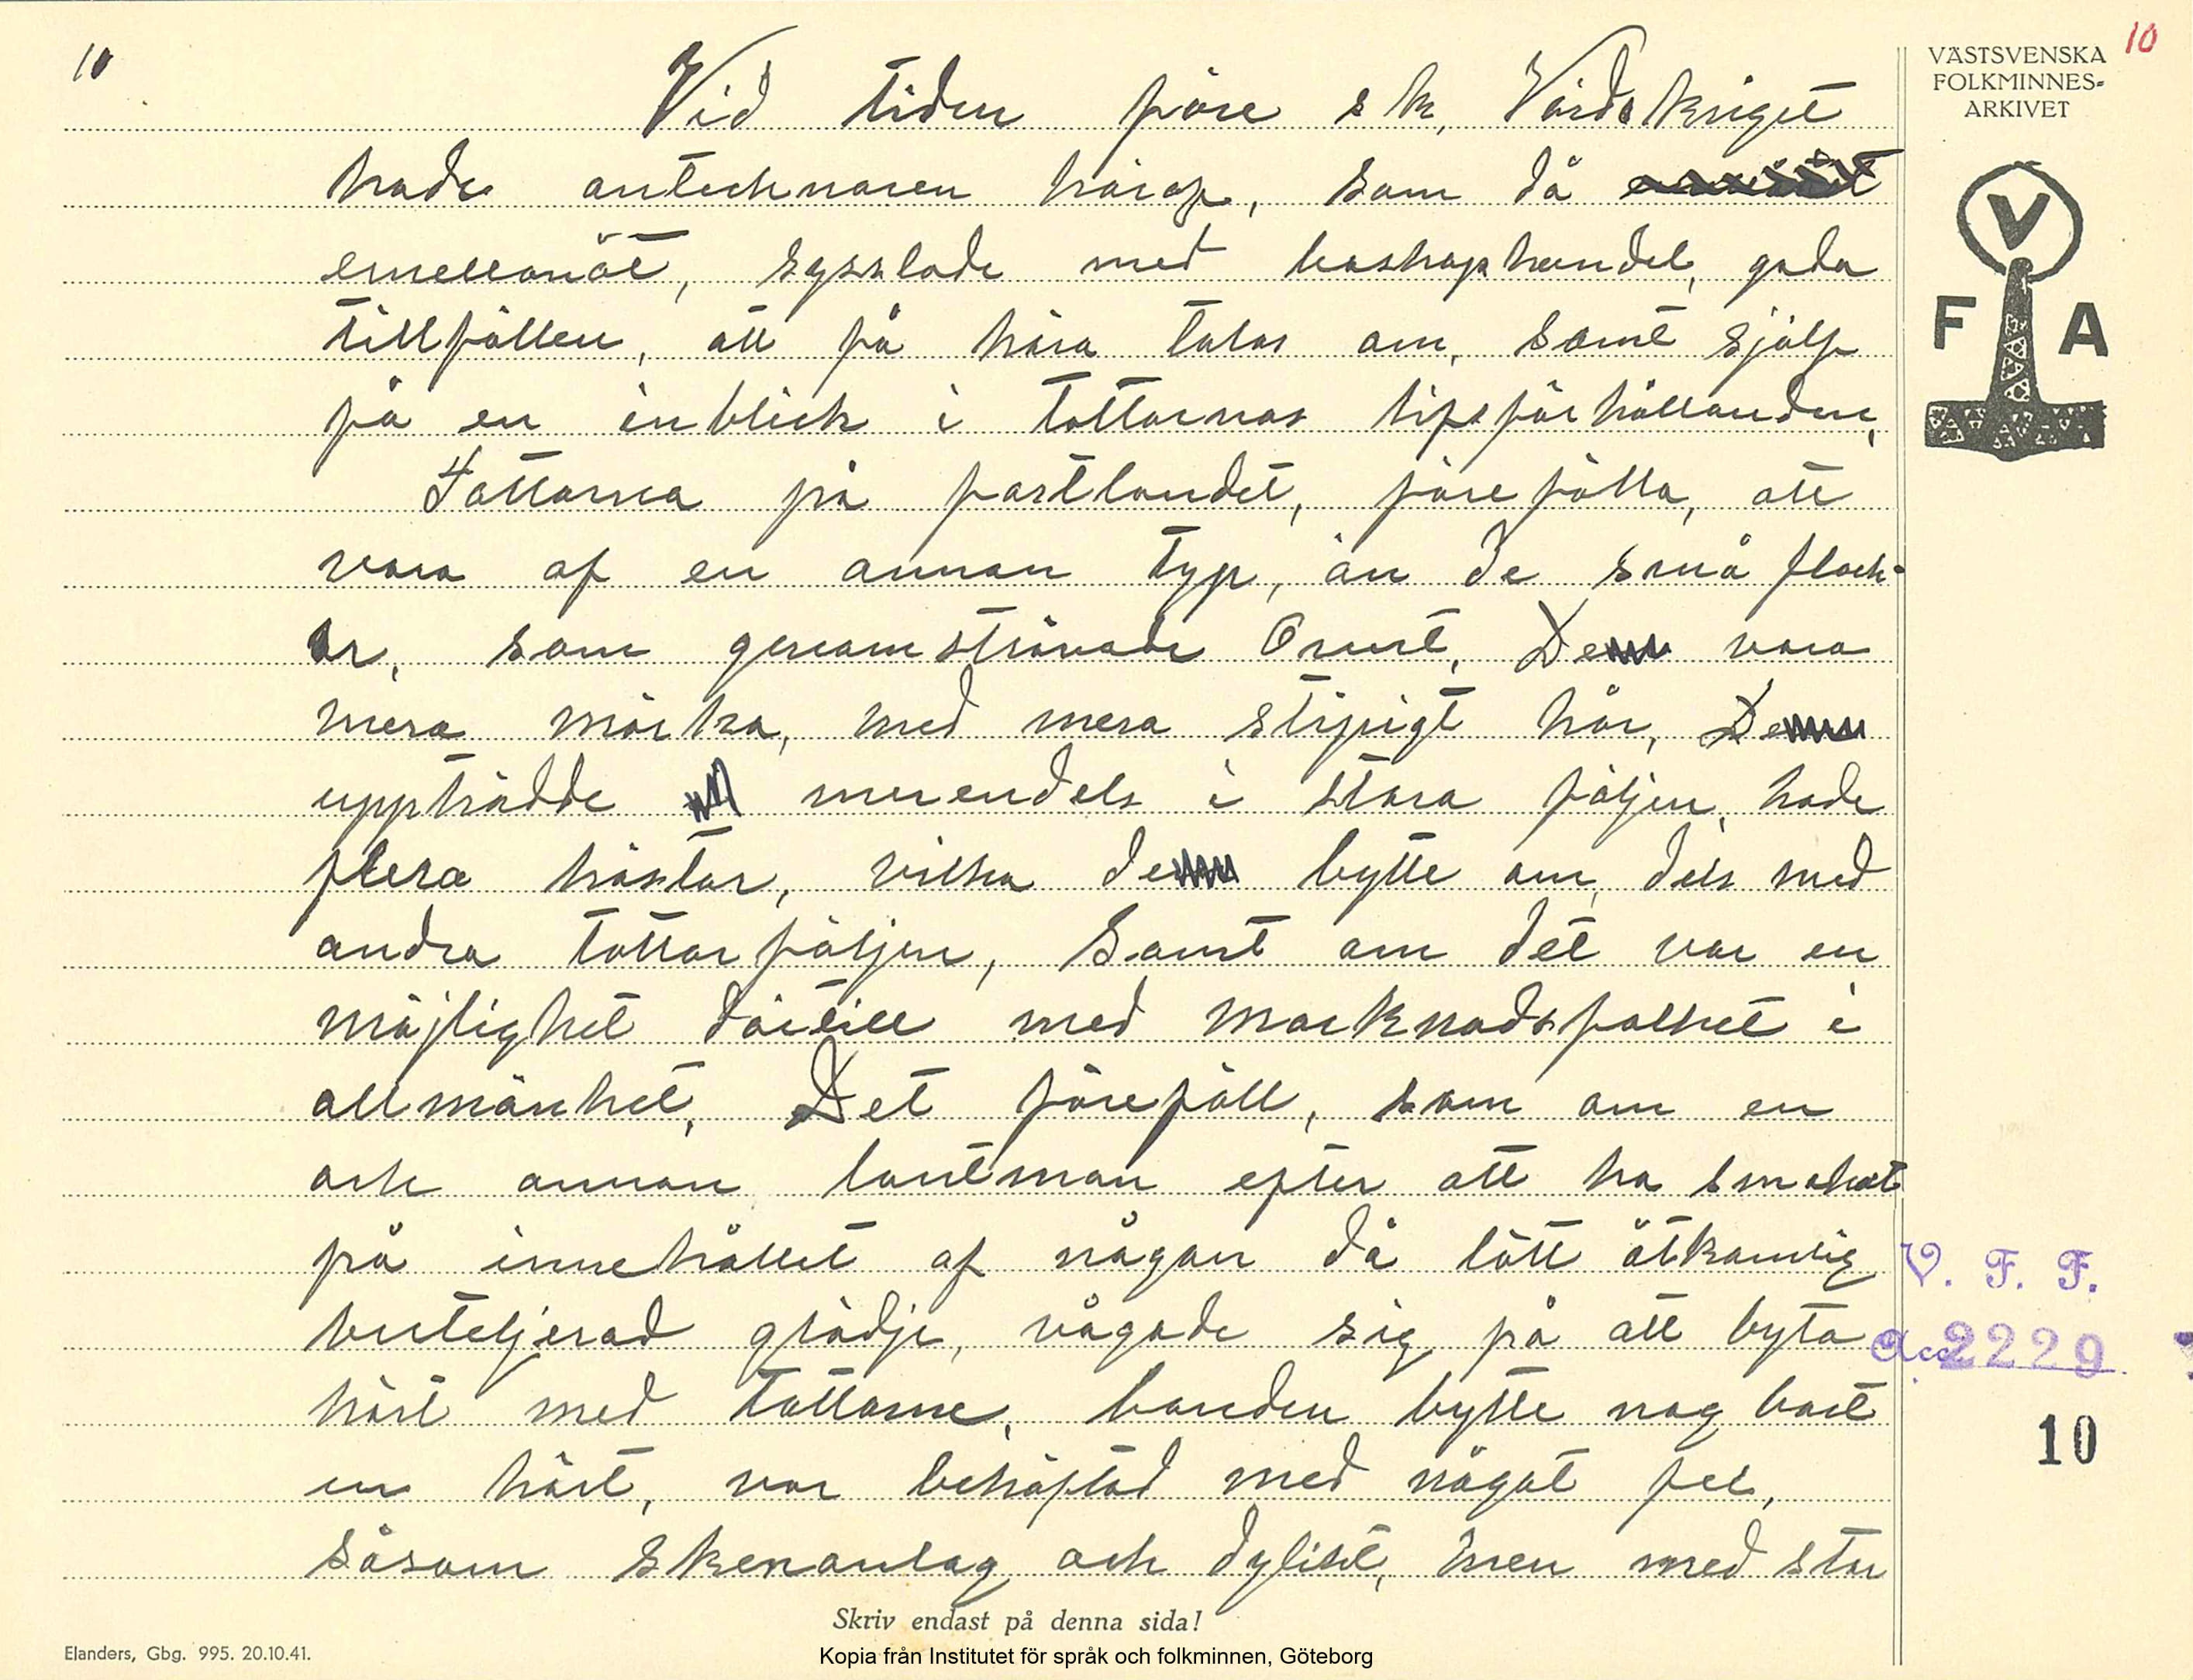 10
10
VÄSTSVENSKA
FOLKMINNES-
ARKIVET
V
F A
Vid tiden före s k, Världskriget
hade antecknaren härav, som då
emellanåt, sysslade med boskaphandel, goda
tillfällen, att få höra talas om, samt själv
få en inblick i tattarnas livsförhållanden,
Tattarna på fastlandet, föreföllo, att
vara af en annan typ, än de små flock-
ar, som genomströvade Orust, De vara
mera mörka, med mera stripigt hår, De
uppträdde merendels i stora följen, hade
flera hästar, vilka de bytte om, dels med
andra tattarföljen, Samt om det var en
möjlighet därtill med marknadsfolket i
allmänhet, Det föreföll, som om en
och annan lantman efter att ha smakat
på innehållet af någon då lätt åtkomlig
buteljerad glädje, vågade sig på att byta
häst med tattarne, bonden bytte nog bort
en häst, var behäftad med något fel,
såsom skenanlag och dylikt, men med stor
V. F. F.
Acc. 2229
10
Skriv endast på denna sida!
Elanders, Gbg. 995. 20.10.41.
Kopia från Institutet för språk och folkminnen, Göteborg